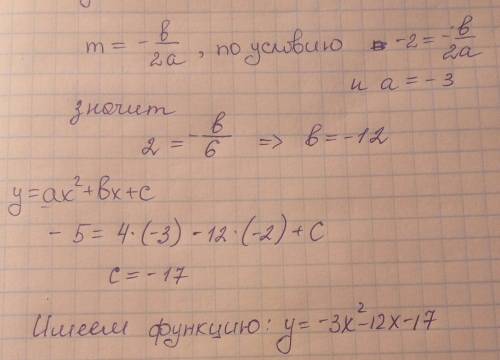 m = -в/2a, по условию -2 = -в/2a
и a = -3
значит
2 = -в/6 => в = -12
y = ax² + вx + c
- 5 = 4·(-3) - 12·(-2) + C
c = -17
Имеем функцию: y = -3x² - 12x - 17